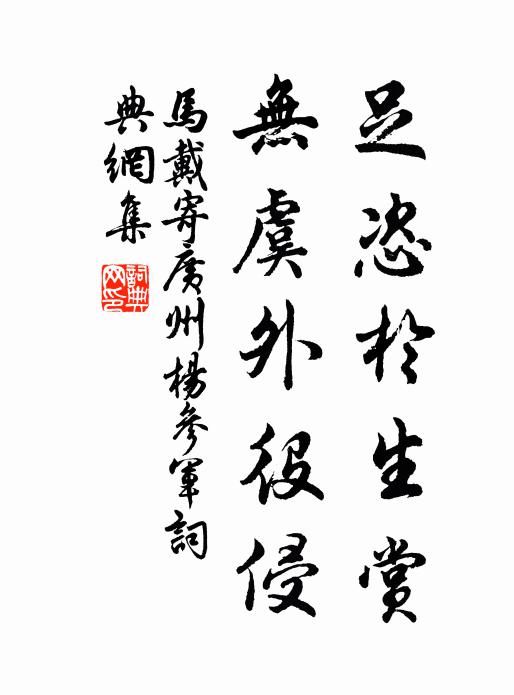 足恣於生賞
無虞外役侵
馬戴寄廣州楊參軍詞
典網集
詞典網印